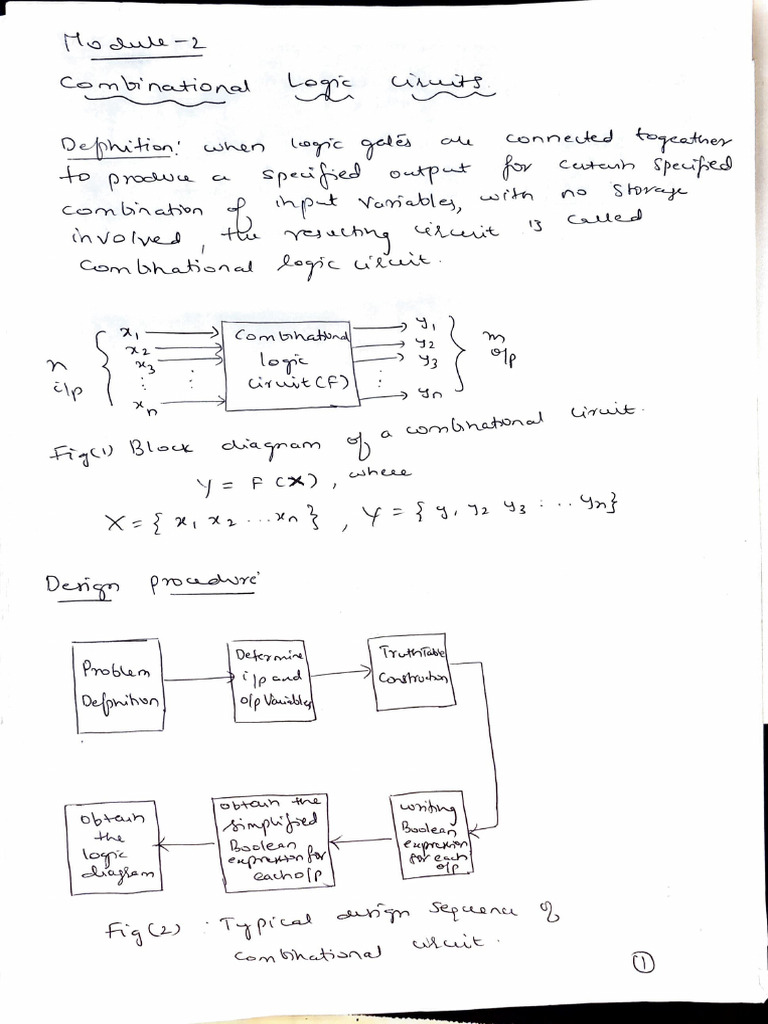 Module-2
Combinational Logic circuits.
Definition: when logic gates are connected togeather
to produce a specified output for certain specified
combination of input variables, with no storage
involved, the resulting circuit is called
combinational logic circuit.
n
i/p
x1
x2
x3
: :
xn
Combinational
logic
circuit (F)
y1
y2
y3
:
yn
m
o/p
Fig(1) Block diagram of a combinational circuit.
Y = F (X), where
X = { x1 x2 ... xn }, Y = { y1 y2 y3 : .. yn}
Design procedure:
Problem
Definition
Determine
i/p and
o/p variables
Truth Table
Construction
obtain
the
logic
diagram
obtain the
simplified
Boolean
expression for
each o/p
writing
Boolean
expression
for each
o/p
Fig(2) : Typical design sequence of
combinational circuit.
1